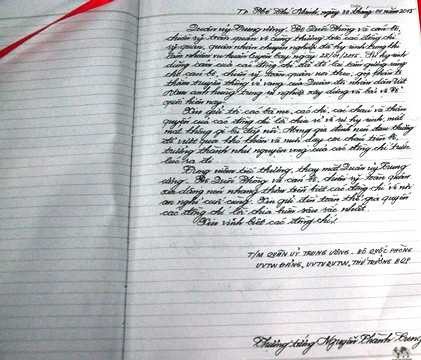 Tp. Hồ Chí Minh, ngày 30 tháng 01 năm 2015
Quân ủy Trung ương, Bộ Quốc Phòng và cán bộ,
chiến sỹ toàn quân vô cùng thương tiếc các đồng chí
sỹ quan, quân nhân chuyên nghiệp đã hy sinh trong khi
làm nhiệm vụ huấn luyện bay ngày 28/01/2015. Sự hy sinh
dũng cảm của các đồng chí đã để lại tấm gương sáng
cho cán bộ, chiến sỹ toàn quân noi theo, góp phần tô
thắm truyền thống vẻ vang của Quân đội nhân dân Việt
Nam anh hùng trong sự nghiệp xây dựng và bảo vệ Tổ
quốc hiện nay.
Xin gửi tới các bà mẹ, các chị, các cháu và thân
quyến của các đồng chí lời chia sẻ về sự hy sinh, mất
mát không gì bù đắp nổi. Mong gia đình nén đau thương
để vượt qua khó khăn và nuôi dạy các cháu tiến bộ,
trưởng thành như nguyện vọng của các đồng chí trước
lúc ra đi.
Trong niềm tiếc thương, thay mặt Quân ủy Trung
ương, Bộ Quốc Phòng và cán bộ, chiến sỹ toàn quân
xin dâng nén nhang thơm tiễn biệt các đồng chí về nơi
an nghỉ cuối cùng. Xin gửi đến toàn thể gia quyến
các đồng chí lời chia buồn sâu sắc nhất.
Xin vĩnh biệt các đồng chí!
T/M QUÂN ỦY TRUNG ƯƠNG - BỘ QUỐC PHÒNG
UVTW ĐẢNG, UVTVQUTW, THỨ TRƯỞNG BQP
Thượng tướng Nguyễn Thành Cung